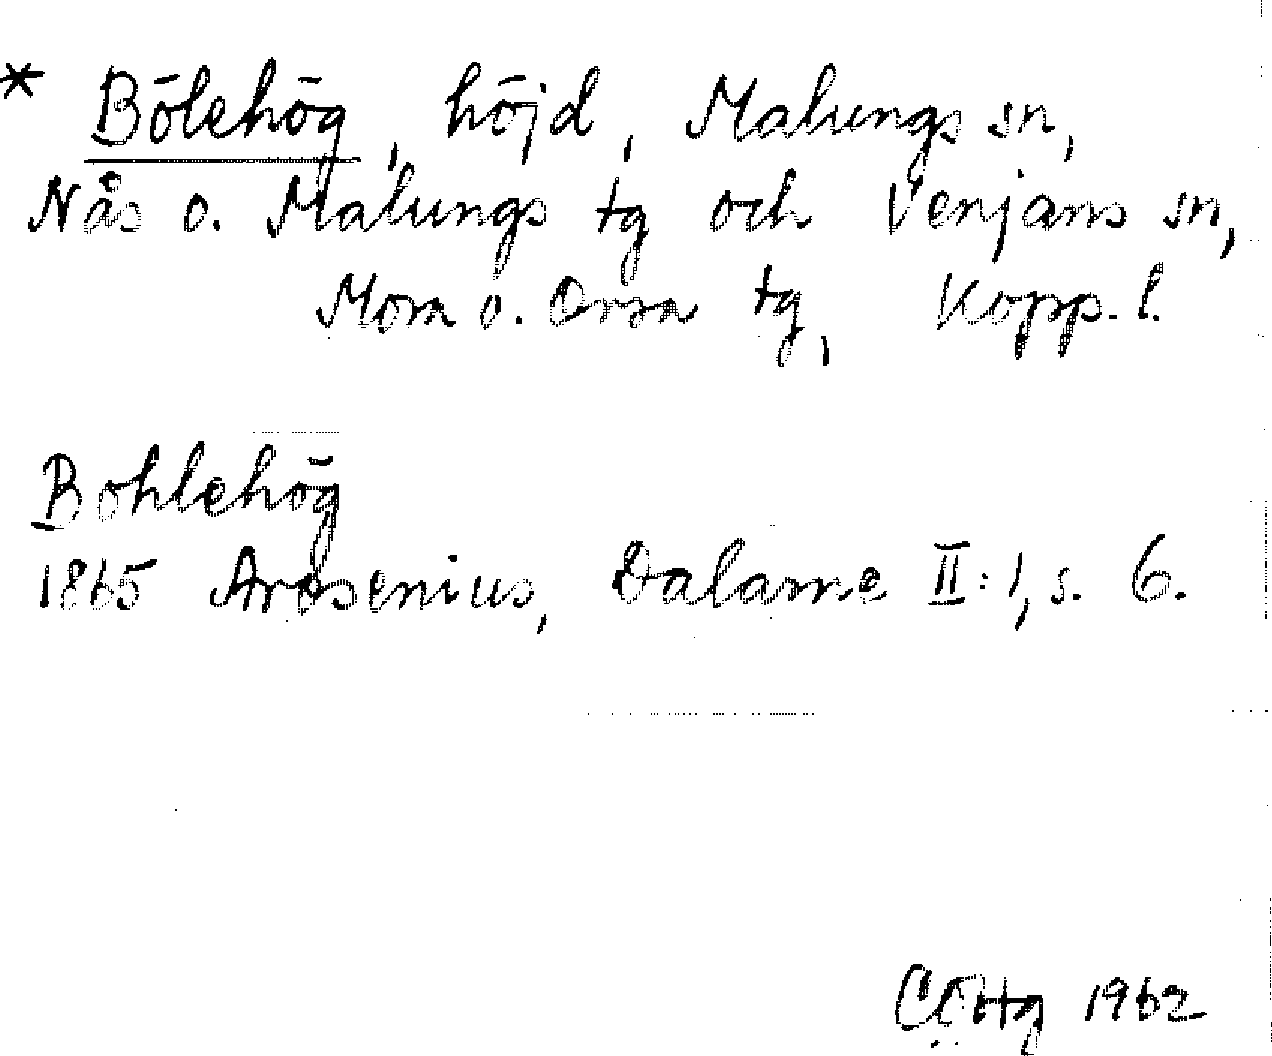 * Bölehög, höjd, Malungs sn,
Nås o. Malungs tg och Venjans sn,
Mora o. Orsa tg, Kopp. l.
Bohlehög
1865 Arosenius, Dalarne II:1, s. 6.
1962